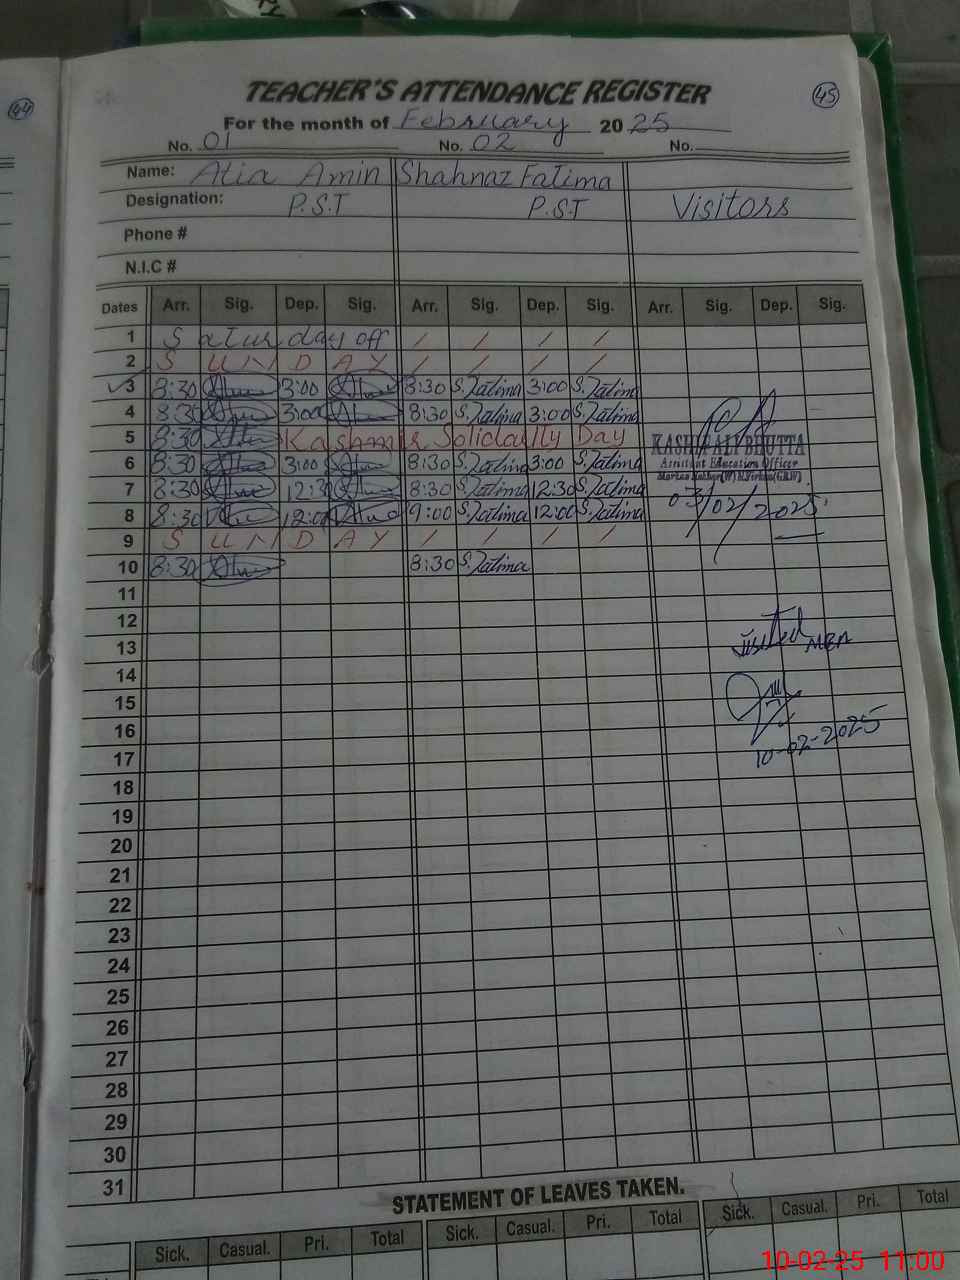 44
45
TEACHER'S ATTENDANCE REGISTER
For the month of February 20 25
No. 01 No. 02 No.
Name: Atia Amin Shahnaz Fatima
Designation: P.S.T P.S.T Visitors
Phone #
N.I.C #
Dates Arr. Sig. Dep. Sig. Arr. Sig. Dep. Sig. Arr. Sig. Dep. Sig.
1 Saturday off / / / /
2 SUNDAY / / / /
3 8:30 3:00 8:30 S.Fatima 3:00 S.Fatima
4 8:30 3:00 8:30 S.Fatima 3:00 S.Fatima
5 8:30 Kashmir Solidarity Day
KASHIF ALI BHUTTA
Assistant Education Officer
6 8:30 3:00 8:30 S.Fatima 3:00 S.Fatima
7 8:30 12:30 8:30 S.Fatima 12:30 S.Fatima
03/02/2025
8 8:30 12:00 9:00 S.Fatima 12:00 S.Fatima
9 SUNDAY / / / /
10 8:30 8:30 S.Fatima
11
12
13
visited MEA
14
15
16
10-02-2025
17
18
19
20
21
22
23
24
25
26
27
28
29
30
31
STATEMENT OF LEAVES TAKEN.
Sick. Casual. Pri. Total Sick. Casual. Pri. Total Sick. Casual. Pri. Total
10-02-25 11:00